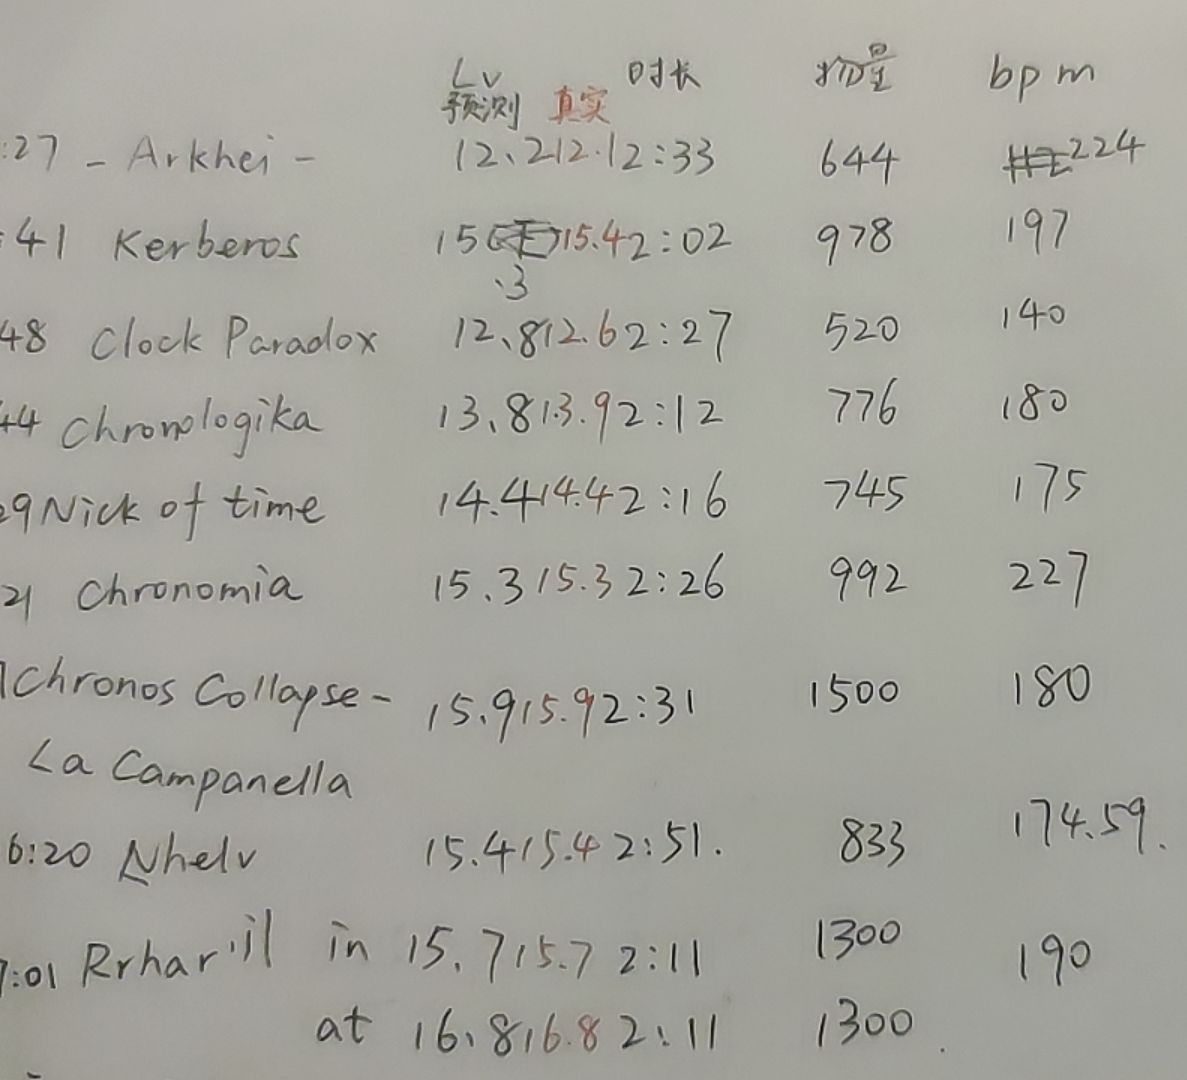 Lv 时长 物量 bpm
预测 真实
:27 - Arkhei - 12.2 12.1 2:33 644 224
:41 Kerberos 15 15.4 2:02 978 197
.3
48 Clock Paradox 12.8 12.6 2:27 520 140
44 Chronologika 13.8 13.9 2:12 776 180
29 Nick of time 14.4 14.4 2:16 745 175
21 Chronomia 15.3 15.3 2:26 992 227
Chronos Collapse - 15.9 15.9 2:31 1500 180
La Campanella
6:20 Nhelv 15.4 15.4 2:51. 833 174.59.
7:01 Rrhar'il in 15.7 15.7 2:11 1300 190
at 16.8 16.8 2:11 1300.